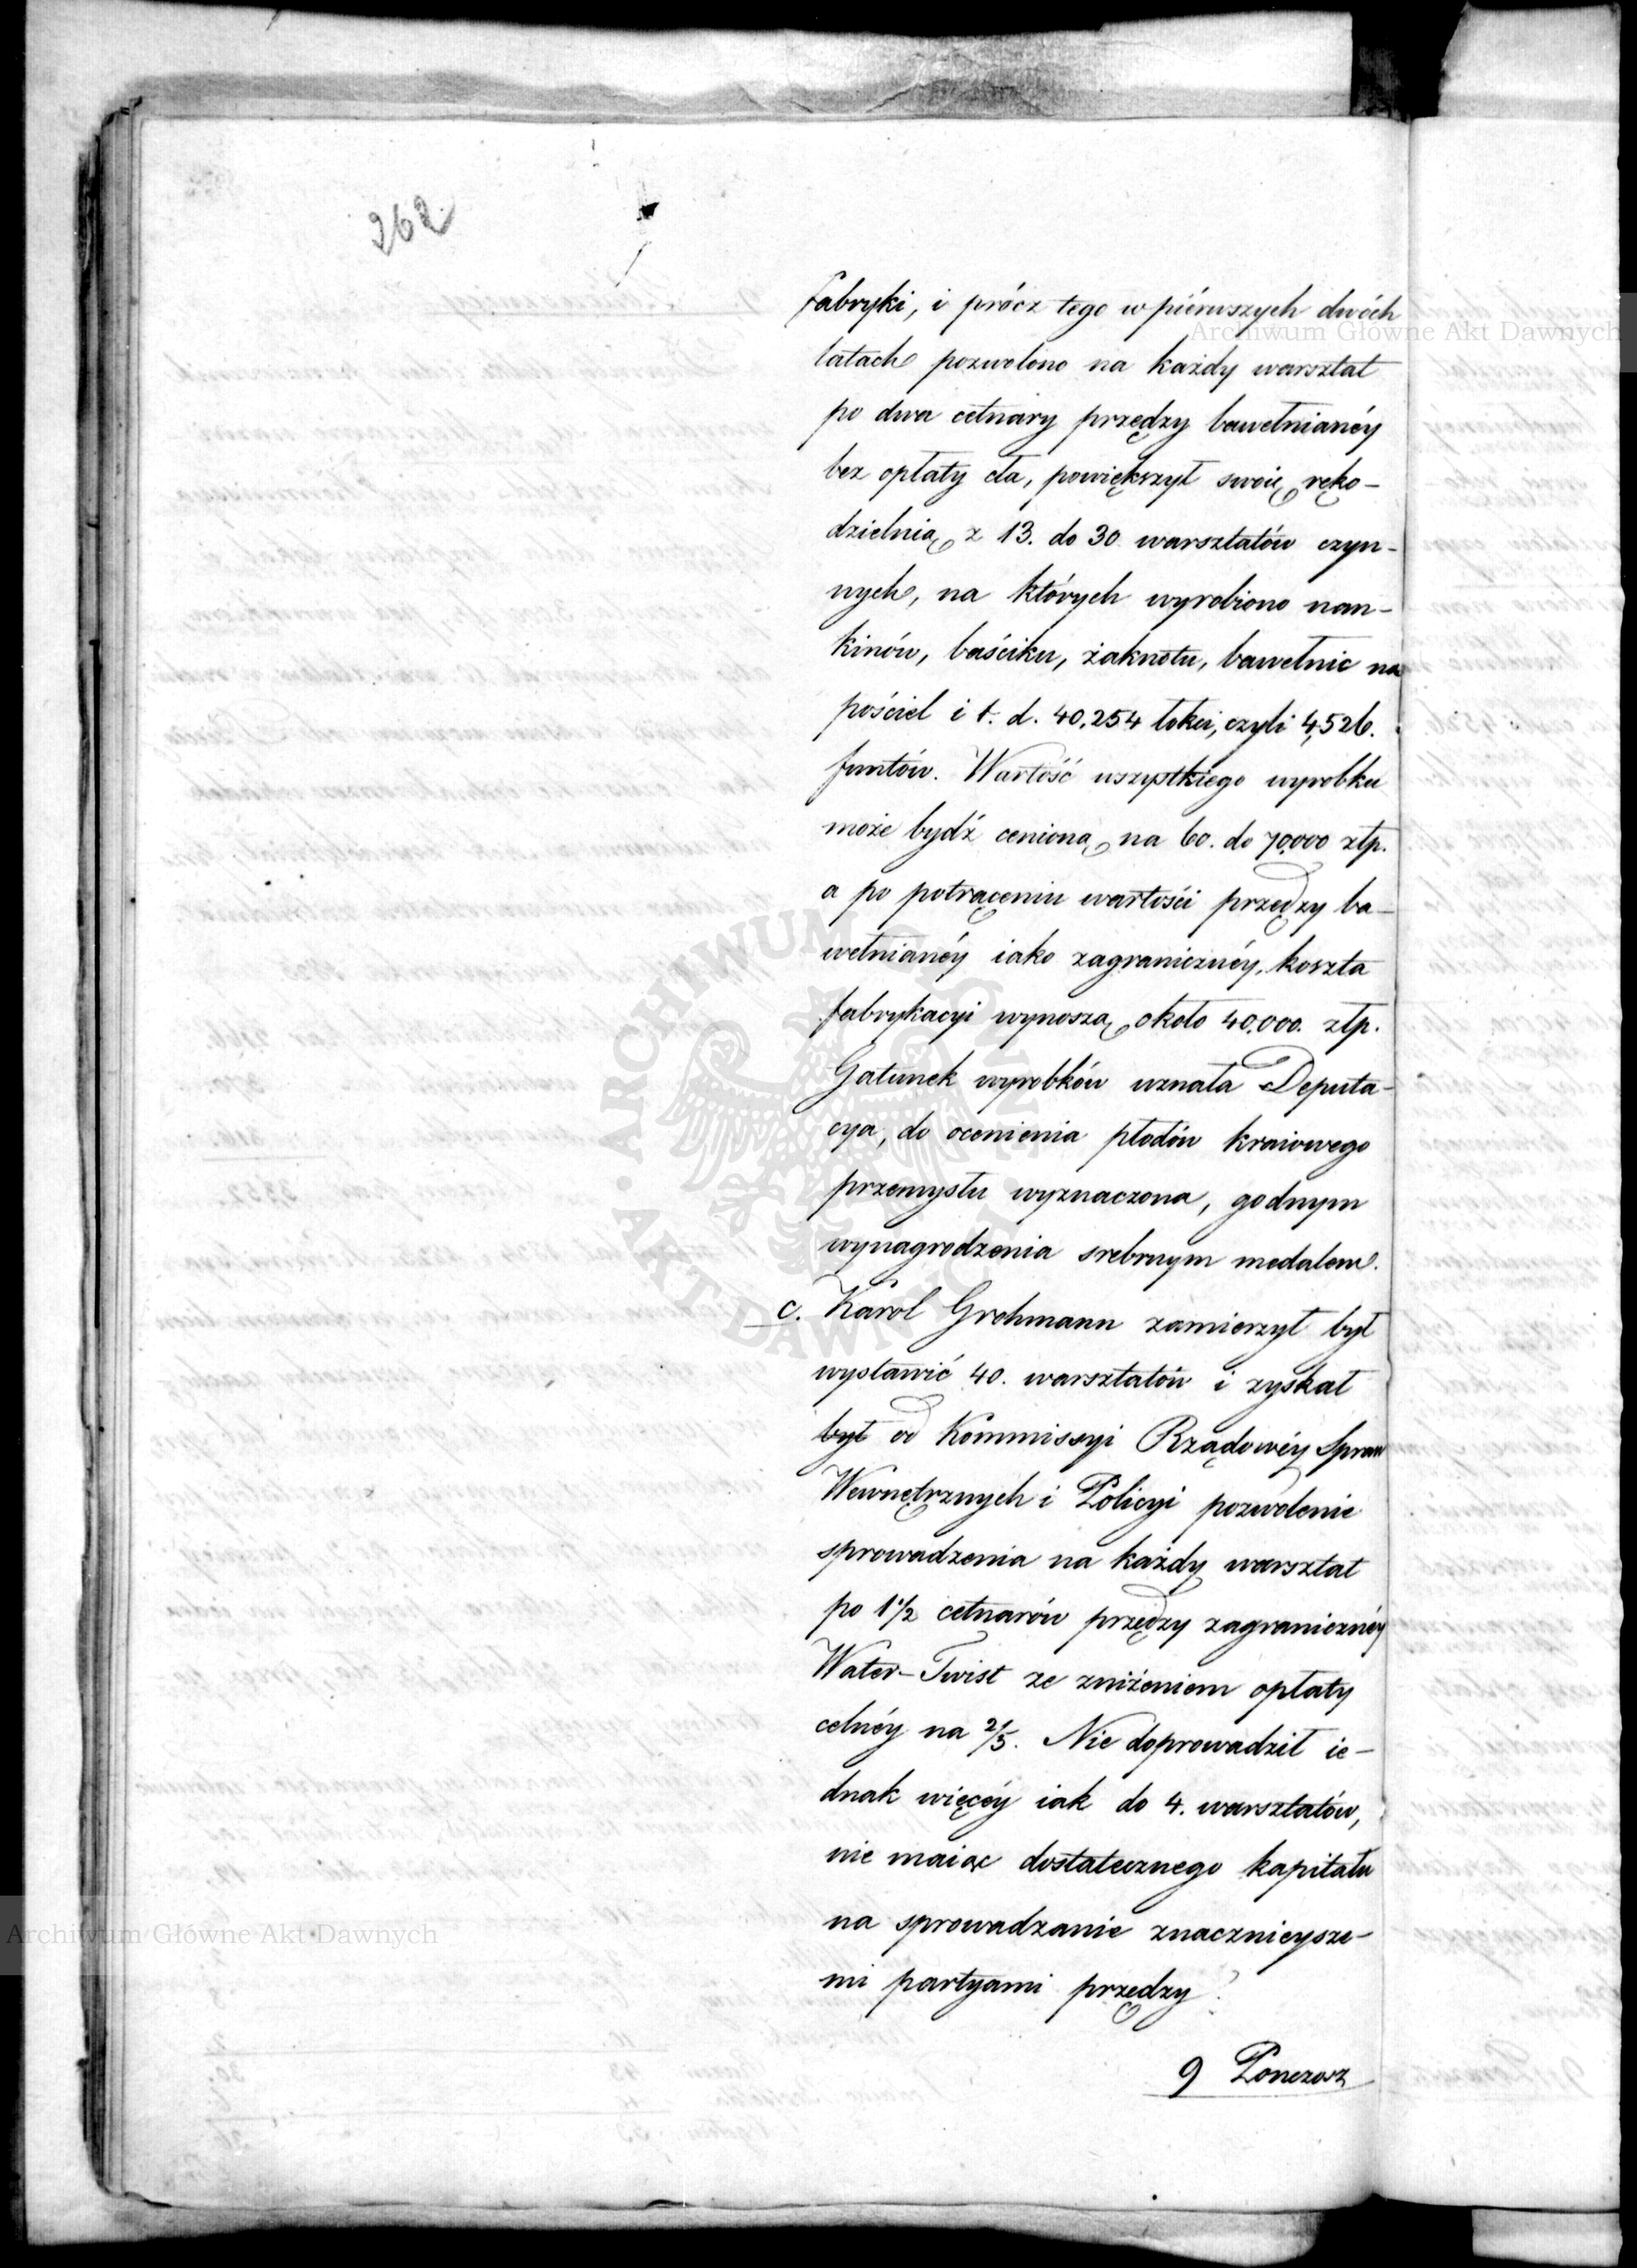 262
fabryki, i prócz tego w piérwszych dwóch
latach pozwolono na każdy warsztat
po dwa cetnary przędzy bawełnianéy
bez opłaty cła, powiększył swoię ręko-
dzielnią z 13. do 30 warsztatów czyn-
nych, na których wyrobiono nan-
kinów, baściku, żaknotu, bawełnic na
pościel i t. d. 40,254 łokci, czyli 4,526.
funtów. Wartość wszystkiego wyrobku
może bydź cenioną na 60. do 70,000 złp.
a po potrąceniu wartości przędzy ba-
wełnianéy iako zagranicznéy, koszta
fabrykacyi wynoszą około 40,000. złp.
Gatunek wyrobków uznała Deputa-
cya, do ocenienia płodów kraiowego
przemysłu wyznaczona, godnym
wynagrodzenia srebrnym medalem.
c. Karol Grohmann zamierzył był
wystawić 40. warsztatów i zyskał
był od Kommissyi Rządowéy Spraw
Wewnętrznych i Policyi pozwolenie
sprowadzenia na każdy warsztat
po 1 1/2 cetnarów przędzy zagranicznéy
Water-Twist ze zniżeniem opłaty
celnéy na 2/5. Nie doprowadził ie-
dnak więcéy iak do 4. warsztatów,
nie maiąc dostatecznego kapitału
na sprowadzanie znacznieysze-
mi partyami przędzy.
9 Pończosz
Archiwum Główne Akt Dawnych
Archiwum Główne Akt Dawnych
ARCHIWUM GŁÓWNE AKT DAWNYCH